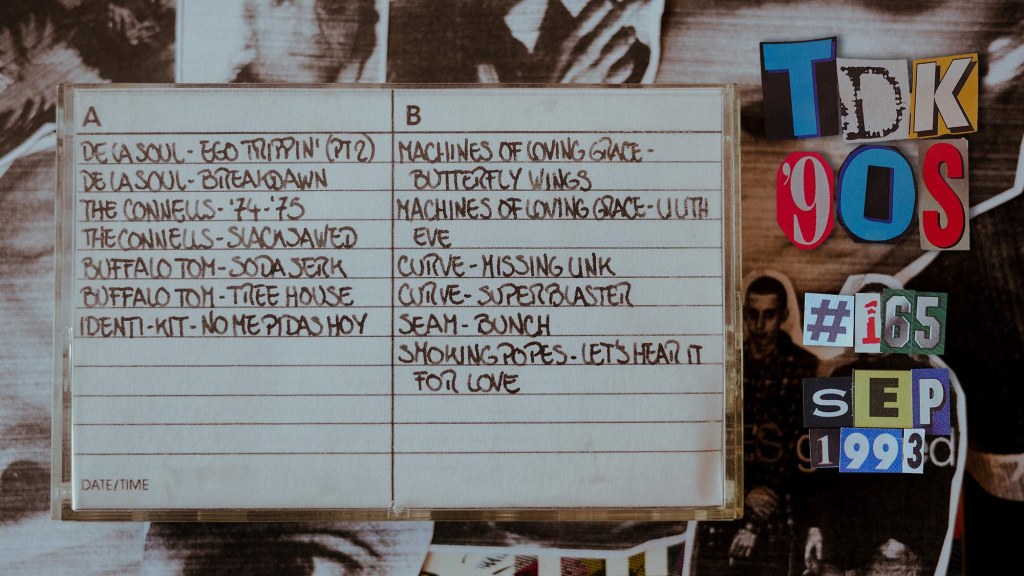 A
DE LA SOUL - EGO TRIPPIN' (PT 2)
DE LA SOUL - BREAKDAWN
THE CONNELLS - '74-'75
THE CONNELLS - SLACKJAWED
BUFFALO TOM - SODA JERK
BUFFALO TOM - TREE HOUSE
IDENTI-KIT - NO ME PIDAS HOY
DATE/TIME
B
MACHINES OF LOVING GRACE -
BUTTERFLY WINGS
MACHINES OF LOVING GRACE - LILITH
EVE
CURVE - MISSING LINK
CURVE - SUPERBLASTER
SEAM - BUNCH
SMOKING POPES - LET'S HEAR IT
FOR LOVE
TDK
'90S
#165
SEP
1993